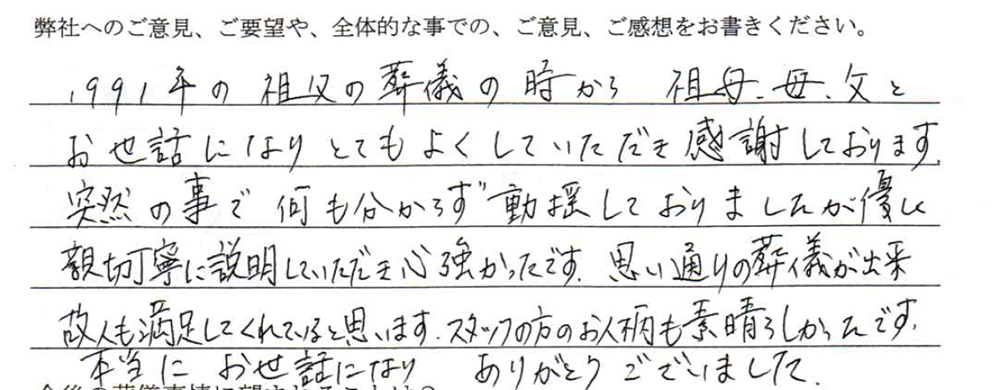 弊社へのご意見、ご要望や、全体的な事での、ご意見、ご感想をお書きください。
1991年の祖父の葬儀の時から 祖母、母、父と
お世話になりとてもよくしていただき感謝しております。
突然の事で何も分からず動揺しておりましたが優しく
親切丁寧に説明していただき心強かったです。思い通りの葬儀が出来
故人も満足してくれていると思います。スタッフの方のお人柄も素晴らしかったです。
本当に お世話になり ありがとうございました。